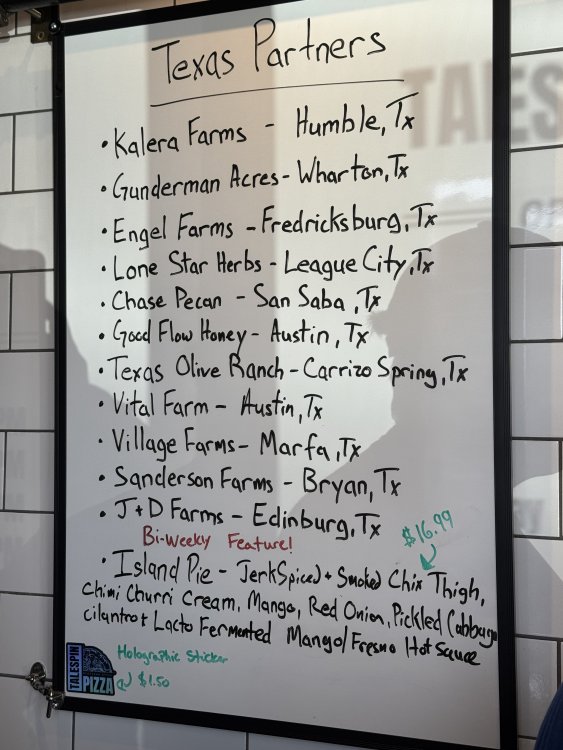 Texas Partners
• Kalera Farms - Humble, Tx
• Gunderman Acres - Wharton, Tx
• Engel Farms - Fredricksburg, Tx
• Lone Star Herbs - League City, Tx
• Chase Pecan - San Saba, Tx
• Good Flow Honey - Austin, Tx
• Texas Olive Ranch - Carrizo Spring, Tx
• Vital Farm - Austin, Tx
• Village Farms - Marfa, Tx
• Sanderson Farms - Bryan, Tx
• J+D Farms - Edinburg, Tx
Bi-Weekly Feature!
$16.99
• Island Pie - Jerk Spiced + Smoked Chix Thigh,
Chimi Churri Cream, Mango, Red Onion, Pickled Cabbage
cilantro + Lacto Fermented Mango/Fresno Hot Sauce
TALESPIN
PIZZA
Holographic Sticker
$1.50
TALES